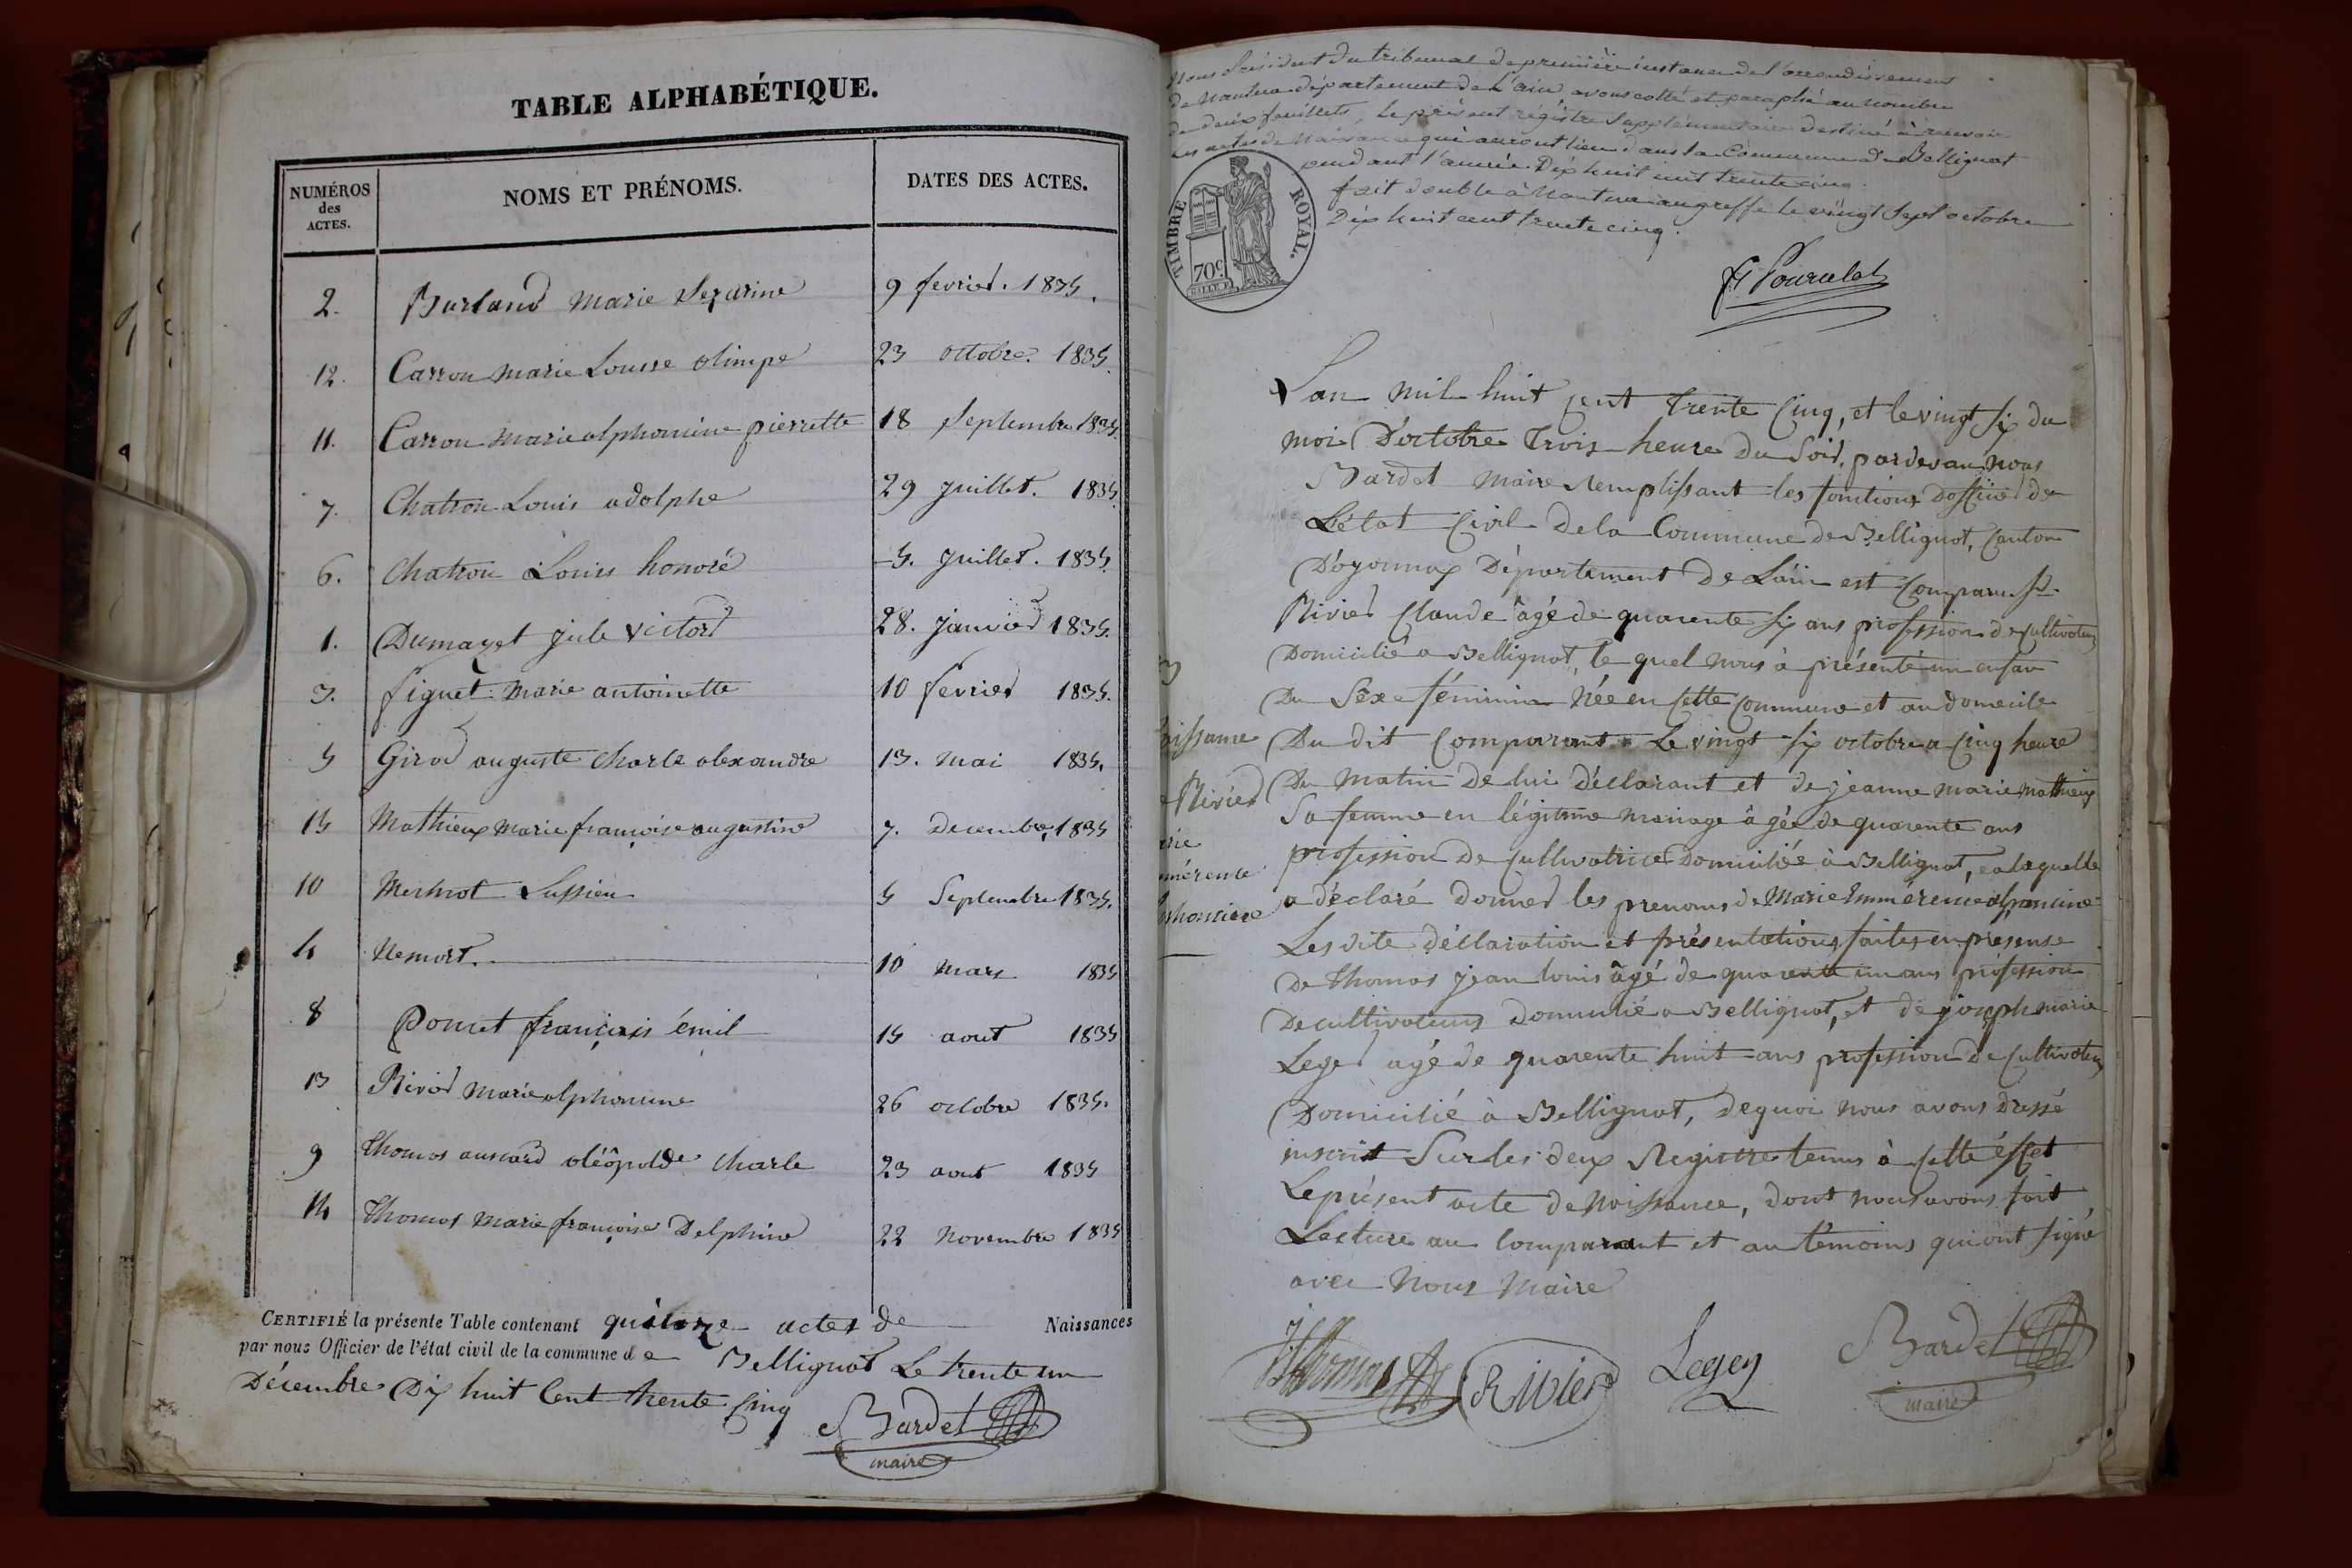 TABLE ALPHABÉTIQUE.
NUMÉROS des ACTES. NOMS ET PRÉNOMS. DATES DES ACTES.
2. Burland Marie Sezarine 9 fevrier. 1835.
12. Carron Marie Louise olimpe 23 octobre. 1835.
11. Carron Marie alphonsine pierrette 18 Septembre 1835.
7. Chatron Louis adolphe 29 juillet. 1835
6. Chatron Louis honoré 5. juillet. 1835.
1. Dumayet jule victor 28. janvier 1835.
3. figuet Marie antoinette 10 fevrier 1835.
5 Girod auguste charle alexandre 13. mai 1835.
15 Mathieux Marie françoise augustine 7. Decembre, 1835
10 Lussien 5 Septembre 1835.
4 Nemort. 10 mars 1835
8 Poncet françois émil 15 aout 1835
13 Rivier Marie alphonsine 26 octobre 1835.
9 Thomas oléôpolde Charle 23 aout 1835
14 Thomas Marie françoise Delphine 22 Novembre 1835
CERTIFIÉ la présente Table contenant quinze actes de Naissances
par nous Officier de l'état civil de la commune de Bellignat Le trente un
Décembre Dix huit Cent trente Cinq
Bardet
maire
Nous Président du tribunal de première instance de l'arrondissement
de Nantua département de l'ain avons cotté et paraphé au nombre
de deux feuillets, le présent régistre supplémentaire destiné à recevoir
les actes de Naissance qui auront lieu dans la Commune de Bellignat
pendant l'année Dix huit cent trente cinq.
fait double à Nantua au greffe le vingt sept octobre
Dix huit cent trente cinq.
TIMBRE ROYAL.
70c
L'an mil huit cent trente Cinq, et le vingt six du
moi D'octobre trois heure du Soir, pardevan nous
Bardet Maire remplissant les fonctions Dofficier de
L'état Civil De la Commune de Bellignat, Canton
D'oyonnax Département De L'ain est Comparu Sr.
Rivier Claude âgé de quarente six ans profession de cultivateur
Domicilié a Bellignat, le quel nous à présenté un enfan
Du Séxe féminin Née en cette commune et au domicile
Du dit Comparant Le vingt six octobre a Cinq heure
Du matin De lui Déclarant et de jeanne marie mathieux
Sa femme en légitime mariage âgée de quarente ans
profession De Cultivatrice Domiciliée à Bellignat, et a laquelle
a déclaré donner les prenoms de Marie Emmérence alphonsine
Les dite déclaration et présentations faites en presense
De Thomas jean louis âgé de quarente un ans profession
De cultivateurs Domicilié a Bellignat, et de joseph marie
Leger agé de quarente huit ans profession de Cultivateur
Domicilié à Bellignat, dequoi nous avons dressé
inscrit Sur les deux Registre tenus à cette éffet
Le présent acte de Naissance, dont nous avons fait
Lecture au Comparant et au témoins qui ont signé
avec Nous Maire
issance
Rivier
rie
mérence
phonsine
Thomas Rivier Leger Bardet
maire